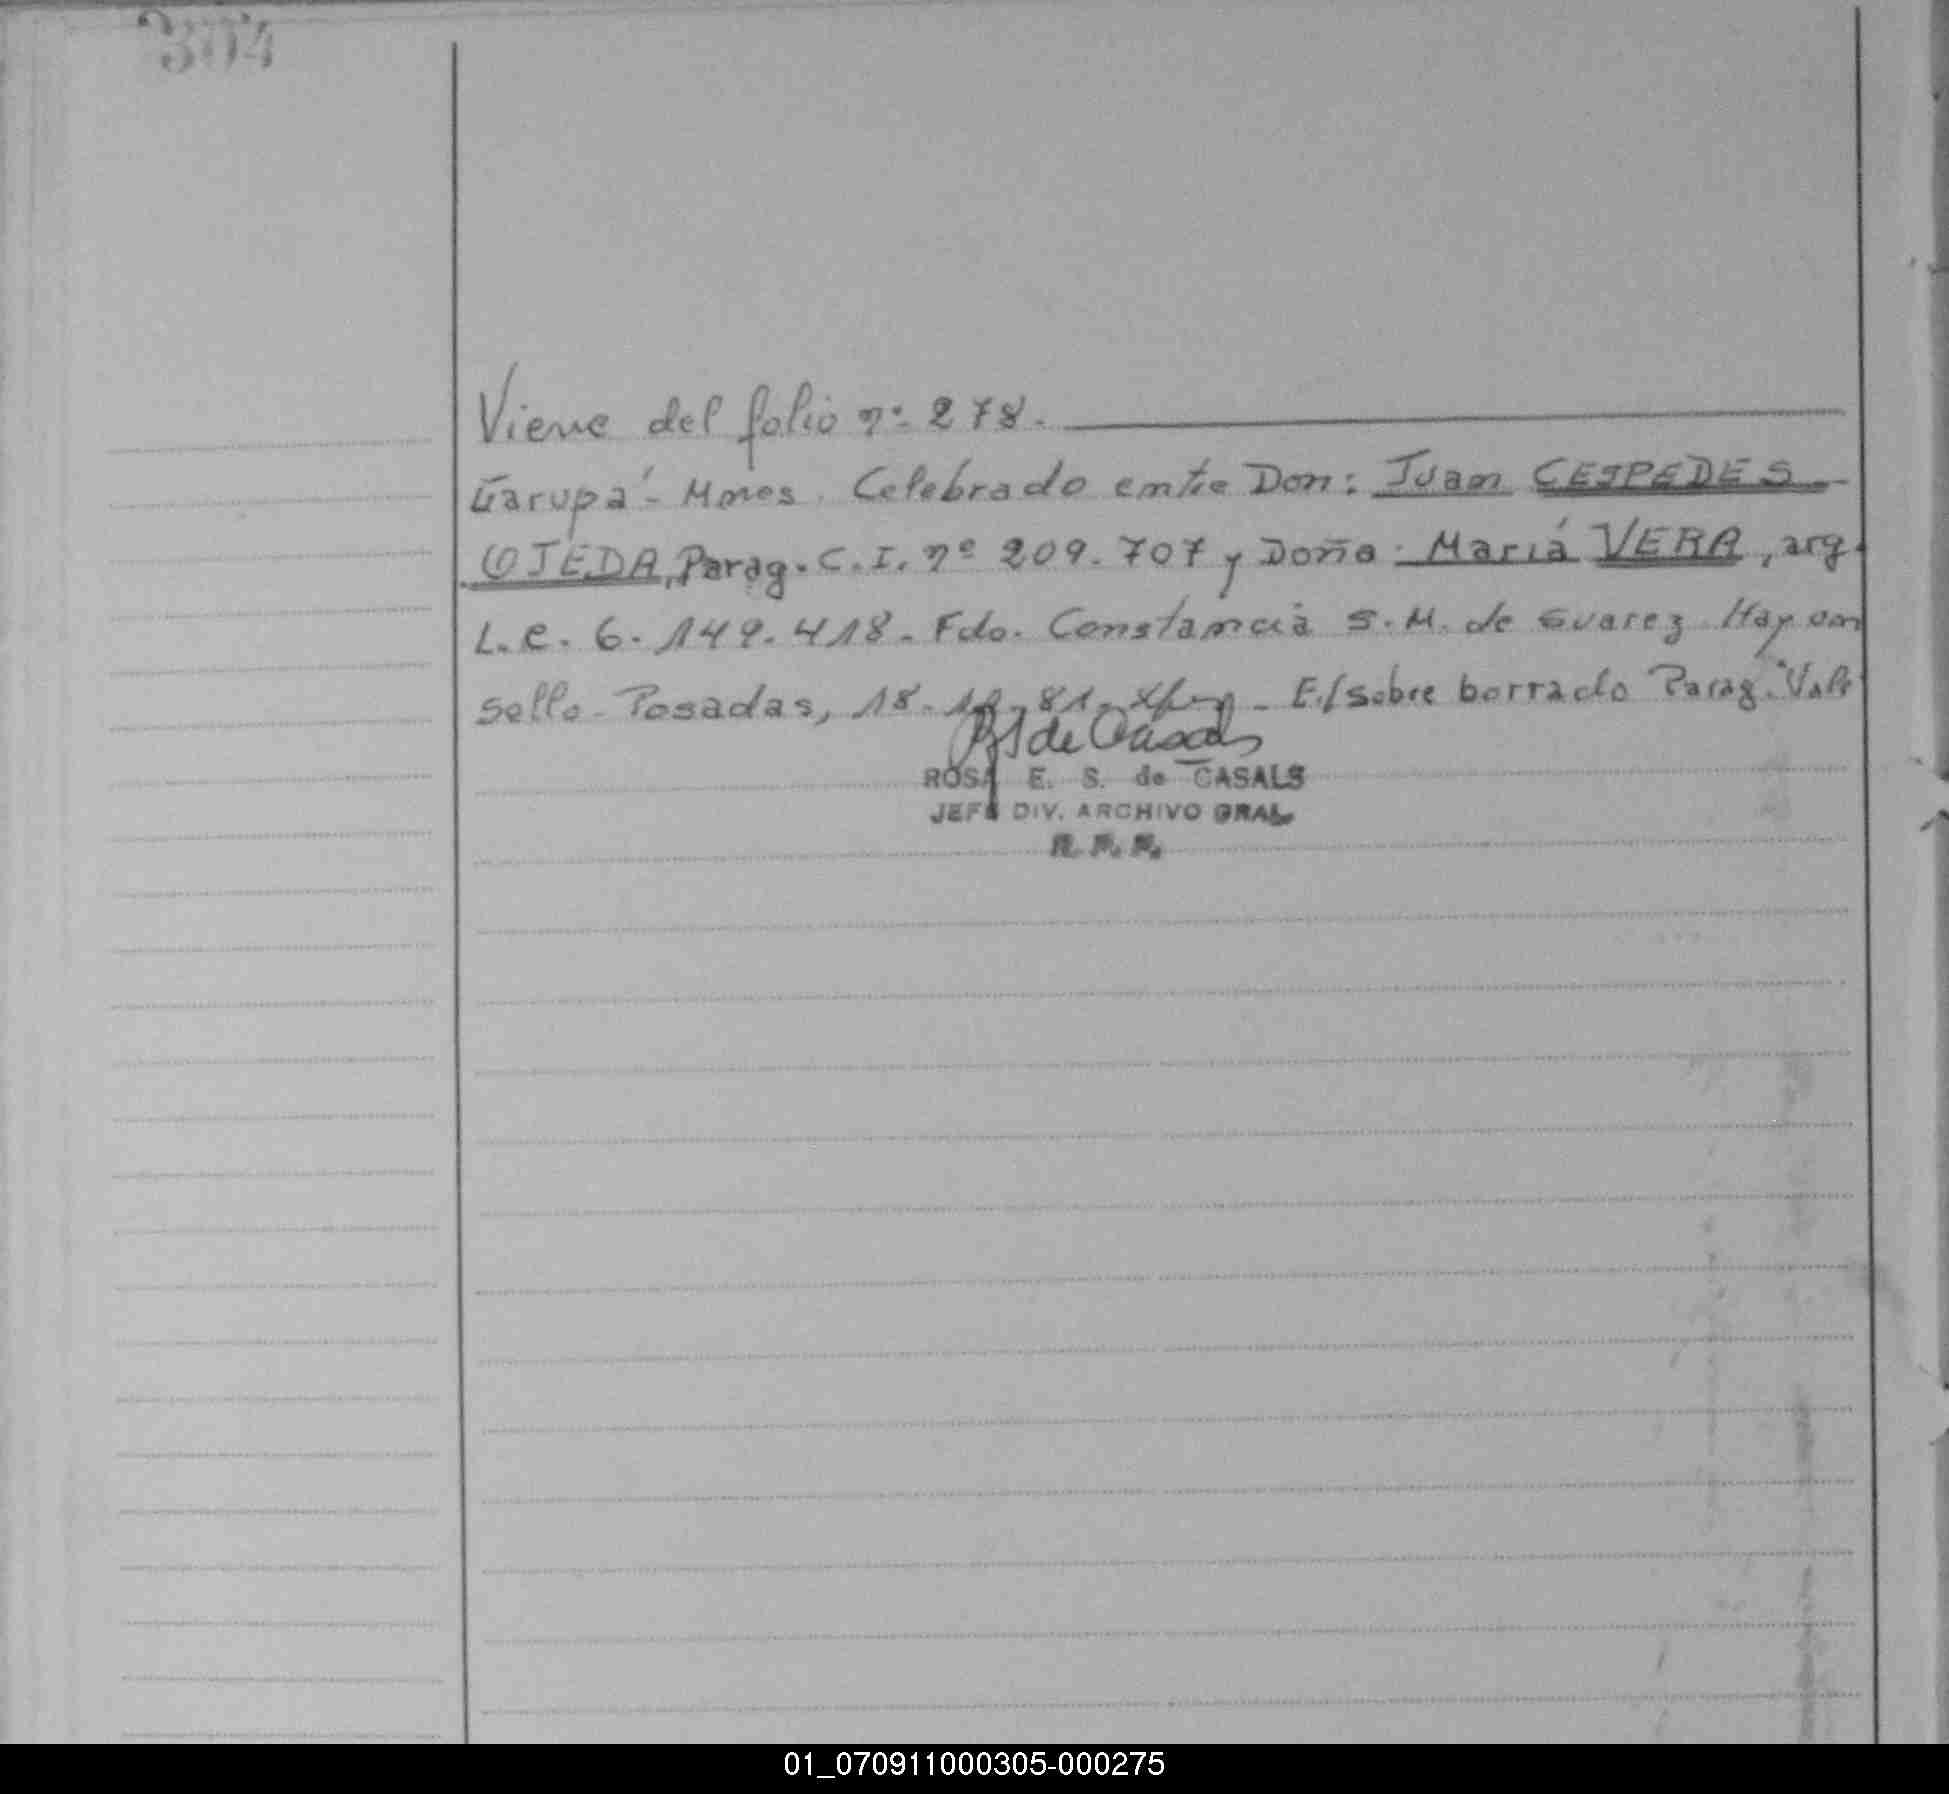 304
Viene del folio nº 278.
Garupá - Mnes. Celebrado entre Don: Juan CESPEDES
OJEDA, Parag. C.I. nº 209.707 y Doña: María VERA, arg.
L.C. 6.149.418. Fdo. Constancia S.M. de Suarez. Hay un
sello. Posadas, 18. 81. E./sobre borrado "Parag." Vale
ROSA E. S. de CASALS
JEFE DIV. ARCHIVO GRAL.
01_070911000305-000275